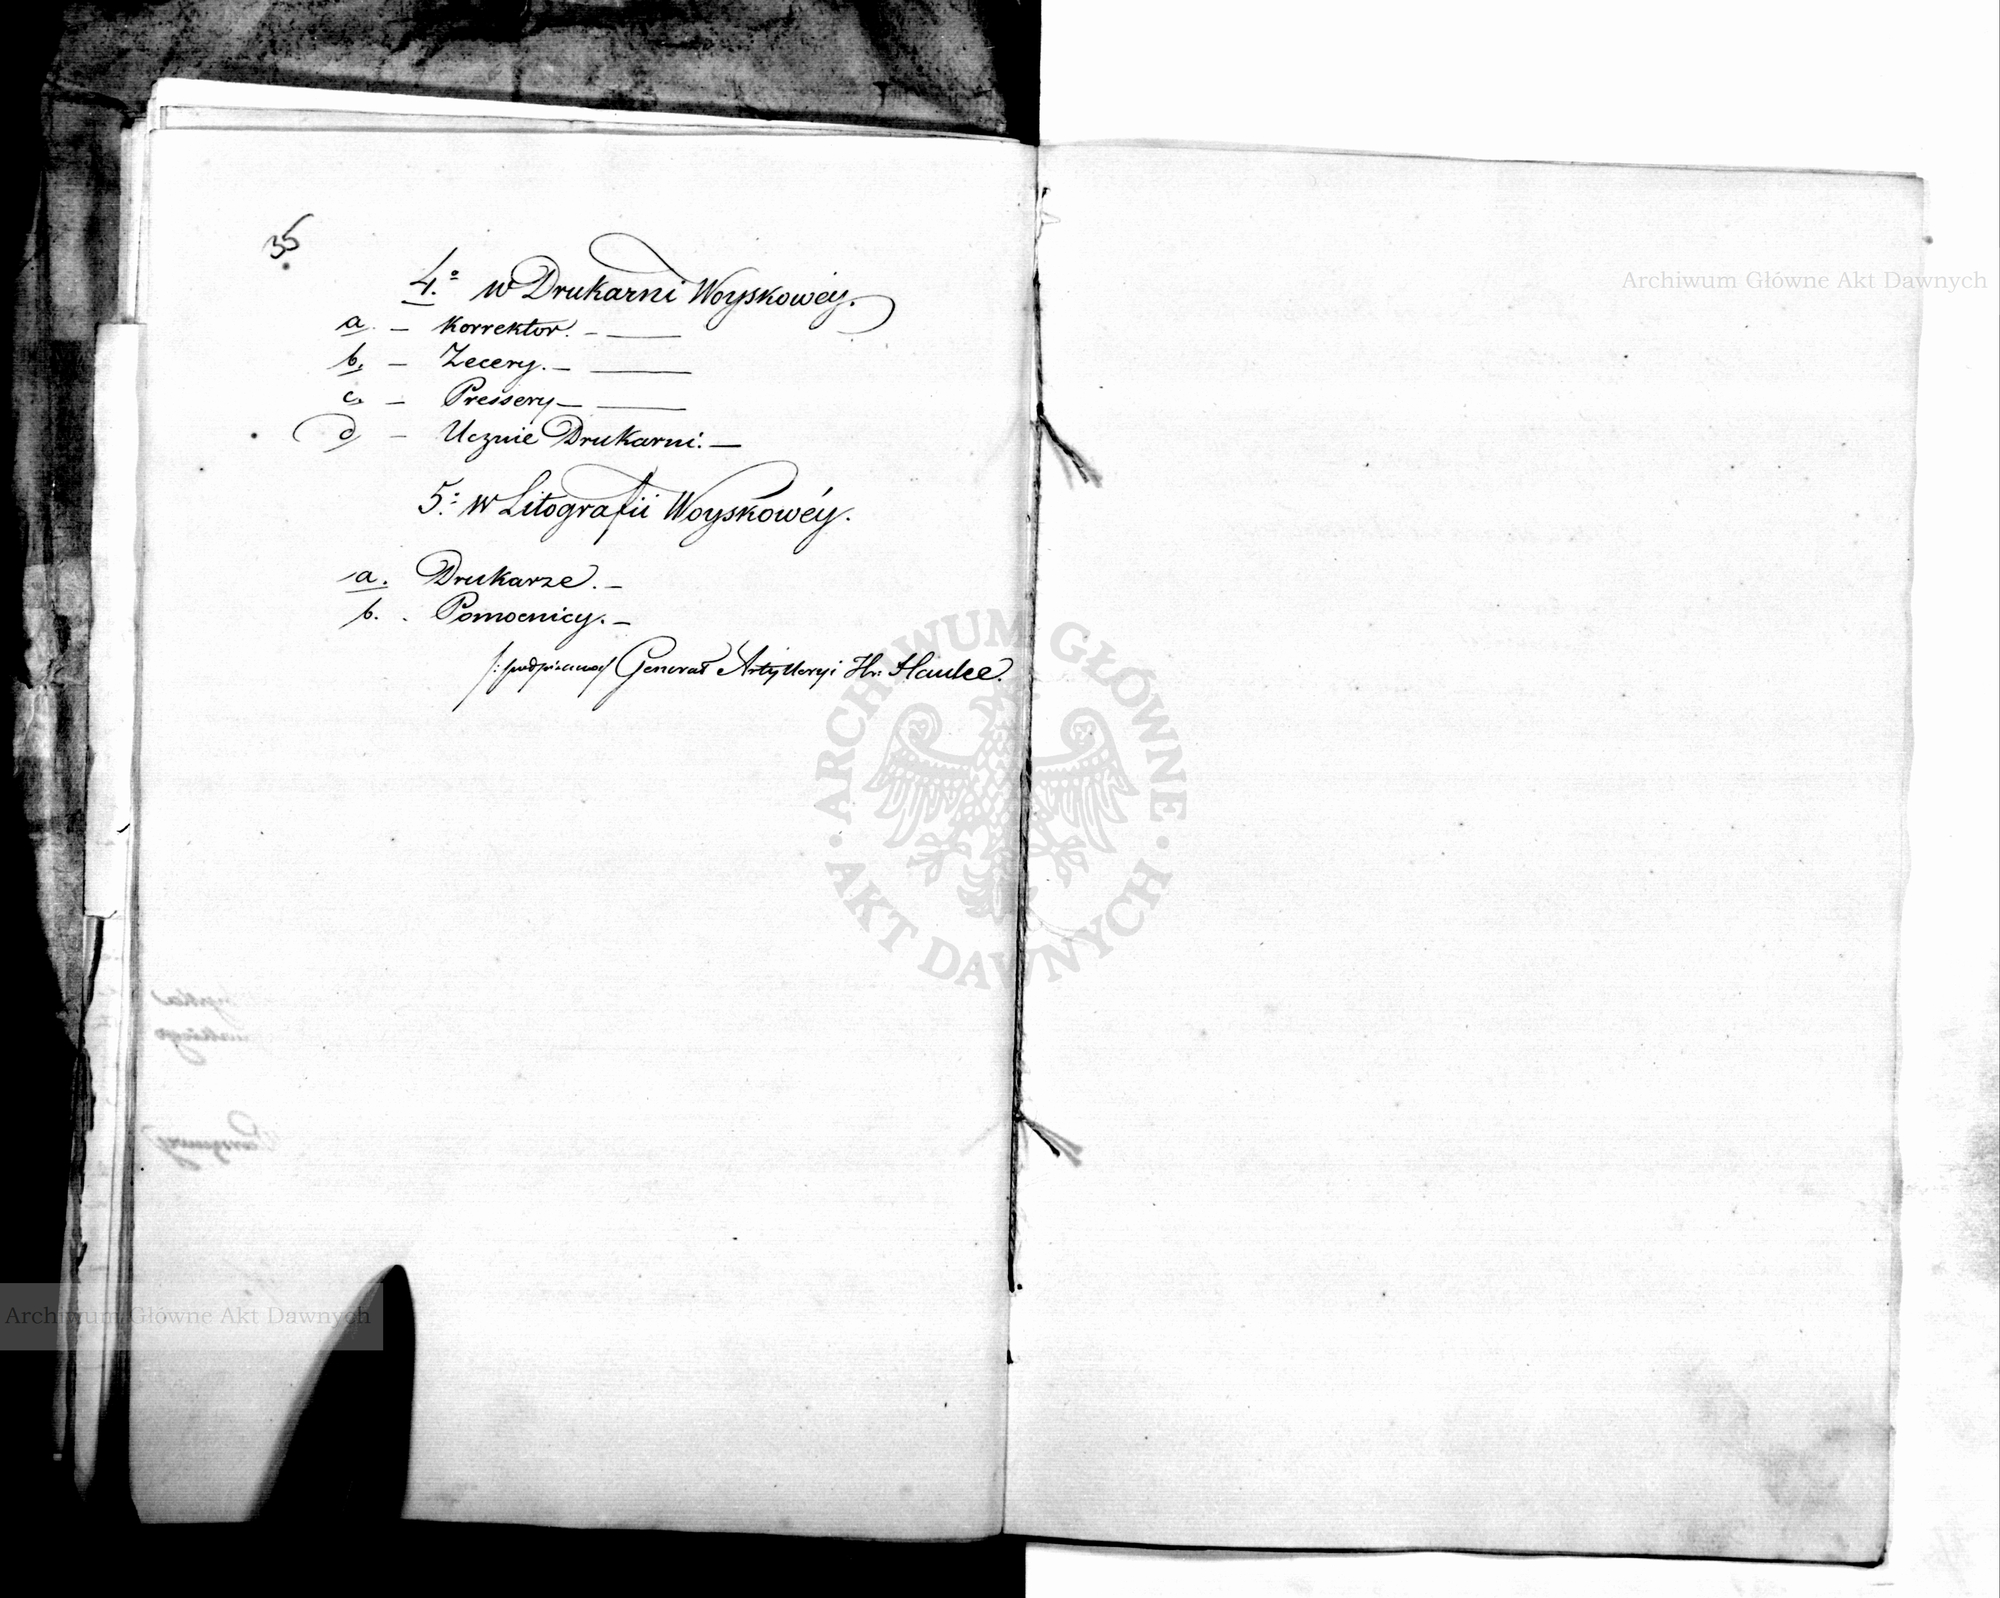 35
4.º w Drukarni Woyskowéy.
a. – Korrektor. –
b. – Zecery. –
c. – Pressery –
d – Ucznie Drukarni. –
5.º w Litografii Woyskowéy.
a. Drukarze. –
b. . Pomocnicy. –
/: podpisano/ Generał Artylleryi Hr: Hauke.
Archiwum Główne Akt Dawnych
ARCHIWUM GŁÓWNE AKT DAWNYCH
Archiwum Główne Akt Dawnych